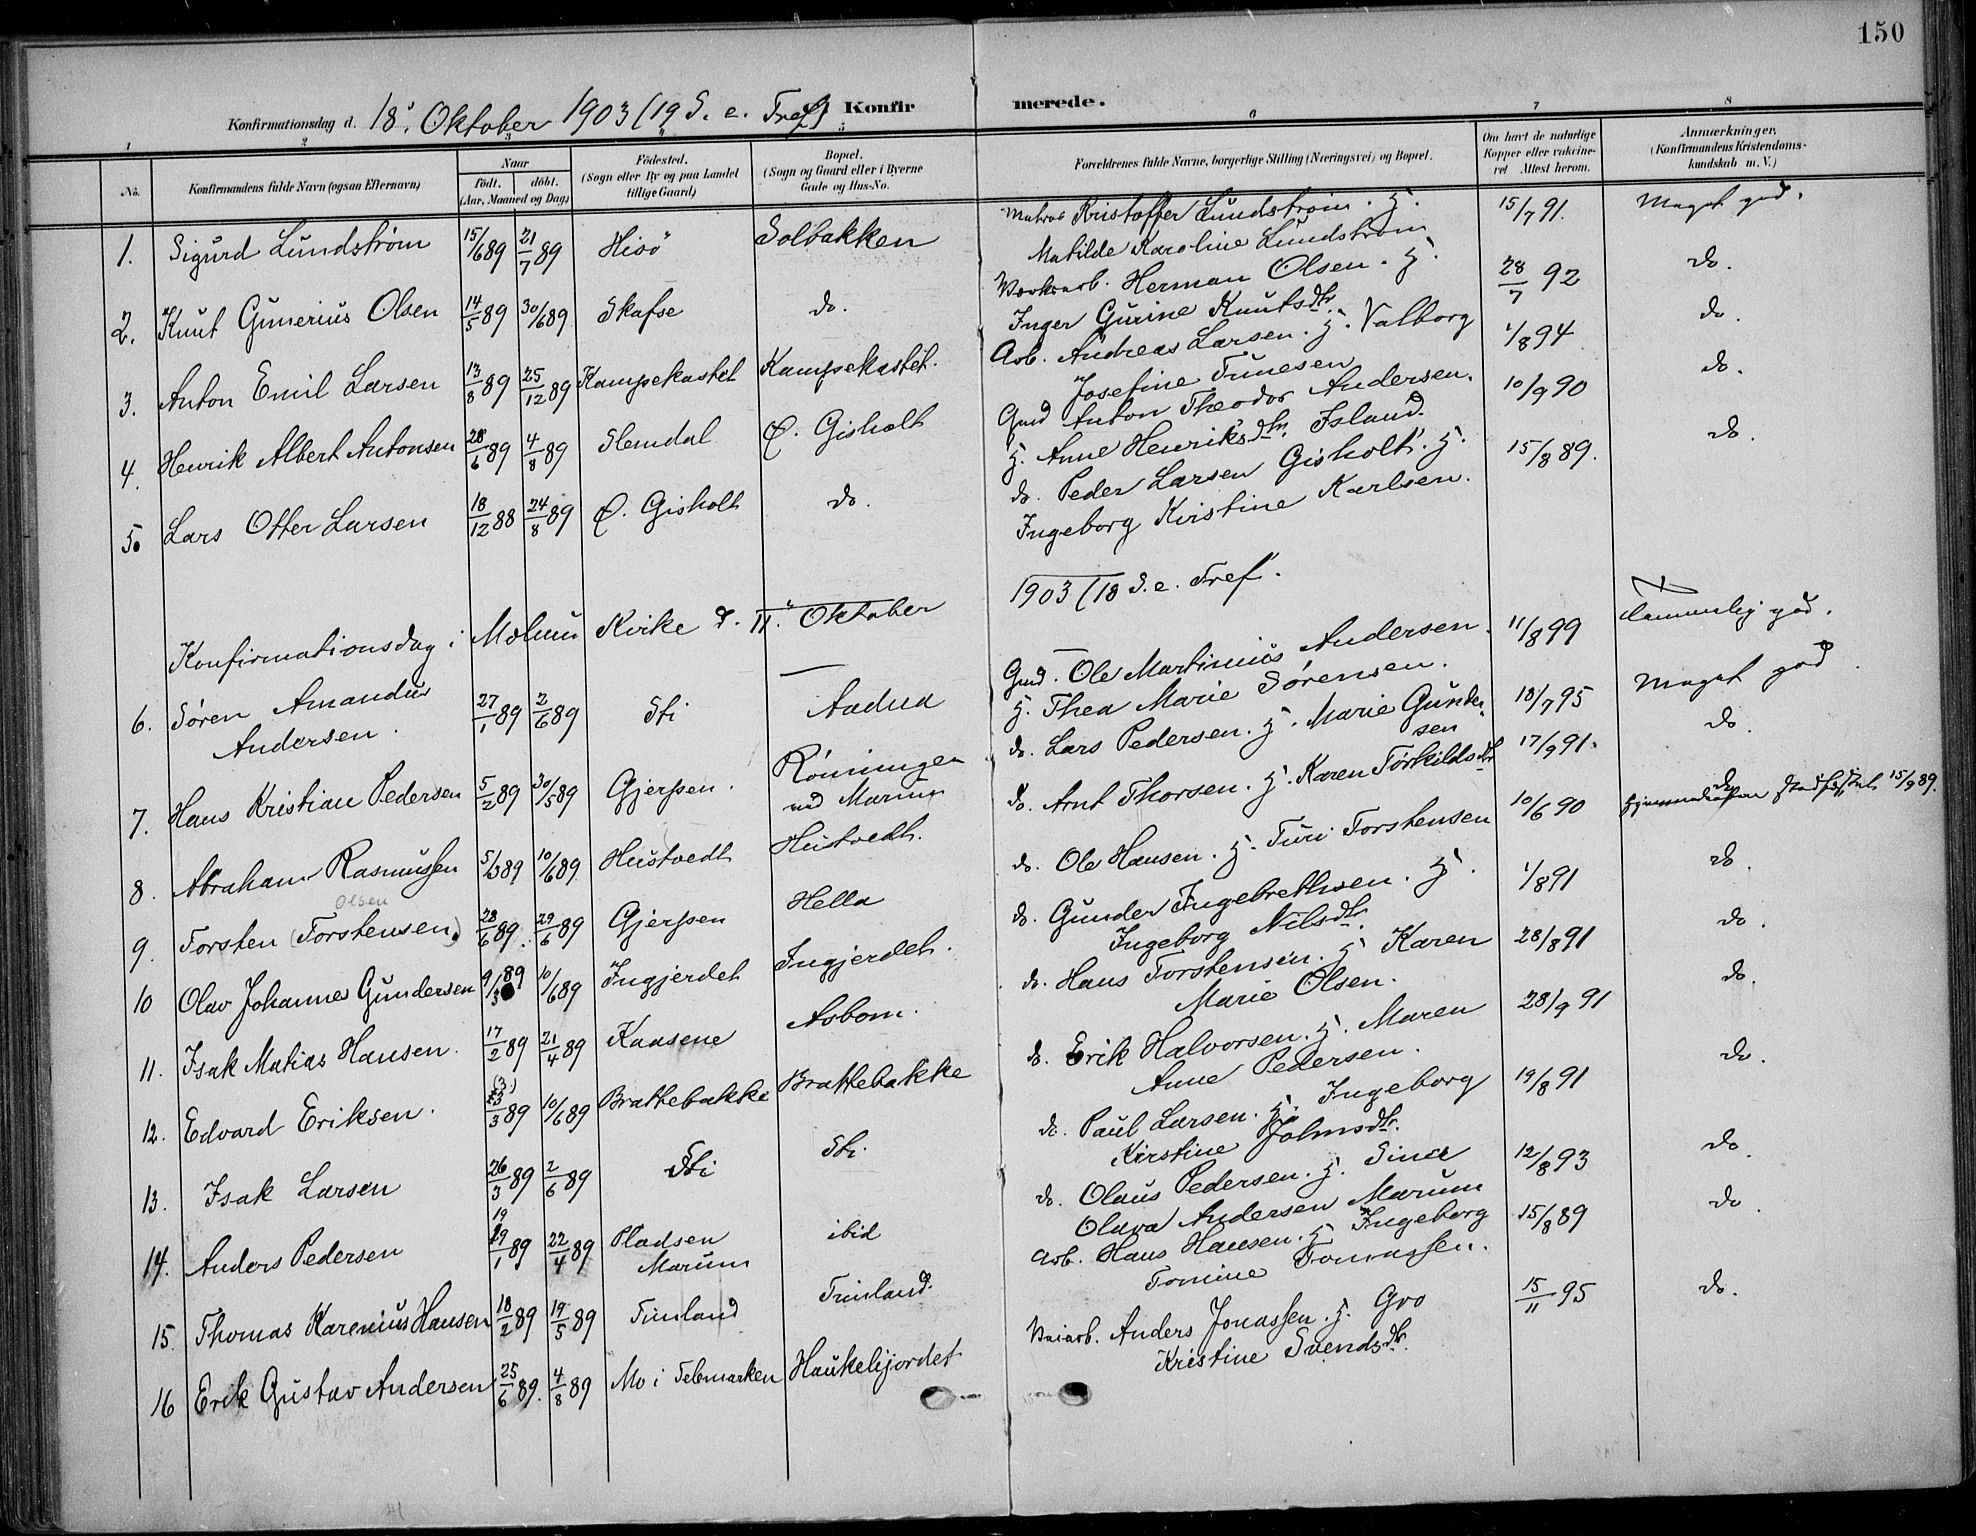 150
Konfirmationsdag d. 18' Oktober 1903 (19 S. e. Tref.) Konfir merede.
1 2 3 4 5 6 7 8
No. Konfirmandens fulde Navn (ogsaa Efternavn) Naar født. døbt. (Aar, Maaned og Dag) Fødested. (Sogn eller By og paa Landet tillige Gaard) Bopæl. (Sogn og Gaard eller i Byerne Gade og Hus-No. Forældrenes fulde Navne, borgerlige Stilling (Næringsvei) og Bopæl. Om havt de naturlige Kopper eller vaccineret Attest herom. Anmærkninger, (Konfirmandens Kristendomskundskab m. V.)
1. Sigurd Lundstrøm 15/6 89 21/7 89 Hisö Solbakken Matros Kristoffer Lundstrøm. H. 15/7 91. Meget god.
Matilde Karoline Lundstrøm
2. Knut Gunerius Olsen 14/5 89 30/6 89 Skafse do. Herman Olsen. H. 28/7 92 do.
Inger Gurine Knutsdtr.
3. Anton Emil Larsen 13/8 89 25/12 89 Kampekastet Kampekastet. Arb. Andreas Larsen. H. Valborg 1/8 94 do.
Josefine Tunesen
4. Henrik Albert Antonsen 28/6 89 4/8 89 Slemdal Ø. Gisholt Gmd Anton Theodor Andersen. 10/9 90 do.
H. Anne Henriksdtr. Island.
5. Lars Otter Larsen 18/12 88 24/8 89 Ø. Gisholt do. do. Peder Larsen Gisholt. H. 15/8 89. do.
Ingeborg Kirstine Karlsen.
Konfirmationsdag i Melum Kirke d. 11' Oktober 1903 (18 S. e. Tref.
6. Søren Amandus Andersen. 27/1 89 2/6 89 Sti Aadna Gmd. Ole Martinius Andersen. 11/8 99 Temmelig god.
H. Thea Marie Sørensen.
7. Hans Kristian Pedersen 5/2 89 30/5 89 Gjerpen. Rønningen ved Marum do. Lars Pedersen. H. Marie Gundersen 18/7 95 Meget god
8. Abraham Rasmussen 5/3 89 10/6 89 Hustvedt Hustvedt. do. Arnt Thorsen. H. Karen Törkildsdtr 17/9 91. do.
Olsen
9. Torsten (Torstensen). 28/6 89. 29/6 89 Gjerpen Hella do. Ole Hansen. H. Turi Torstensen 10/6 90 do Hjemmedaaben stadfæstet 15/9 89.
10 Olav Johannes Gundersen 9/3 89 10/6 89 Ingjerdet Ingjerdet. do. Gunder Ingebrethsen. H. 1/8 91 do.
Ingeborg Nilsdtr.
11. Isak Matias Hansen. 17/2 89 21/4 89 Kaasene Asbom. do. Hans Torstensen. H. Karen 28/8 91 do.
Marie Olsen.
12. Edvard Eriksen. (3)/3 89 10/6 89 Brattebakke Brattebakke do. Erik Halvorsen. H. Maren 28/9 91 do.
Anne Pedersen.
13. Isak Larsen 26/3 89 2/6 89 Sti Sti. do. Paul Larsen. H. Ingeborg 19/8 91 do.
Kirstine Johnsdtr.
14. Anders Pedersen 19/1 89 22/4 89 Pladsen Marum ibid do. Olaus Pedersen. H. Sina 12/8 93 do.
Olava Andersen Marum
15. Thomas Karenius Hansen 18/2 89 19/5 89 Tinland Tinland. Arb. Hans Hansen. H. Ingeborg 15/8 89 do
Tomine Tomassen.
16 Erik Gustav Andersen 25/6 89. 4/8 89 Mo i Telemarken Haukelijordet Veiarb. Anders Jonassen. H. Gro 15/11 95 do.
Kristine Svendsdtr.